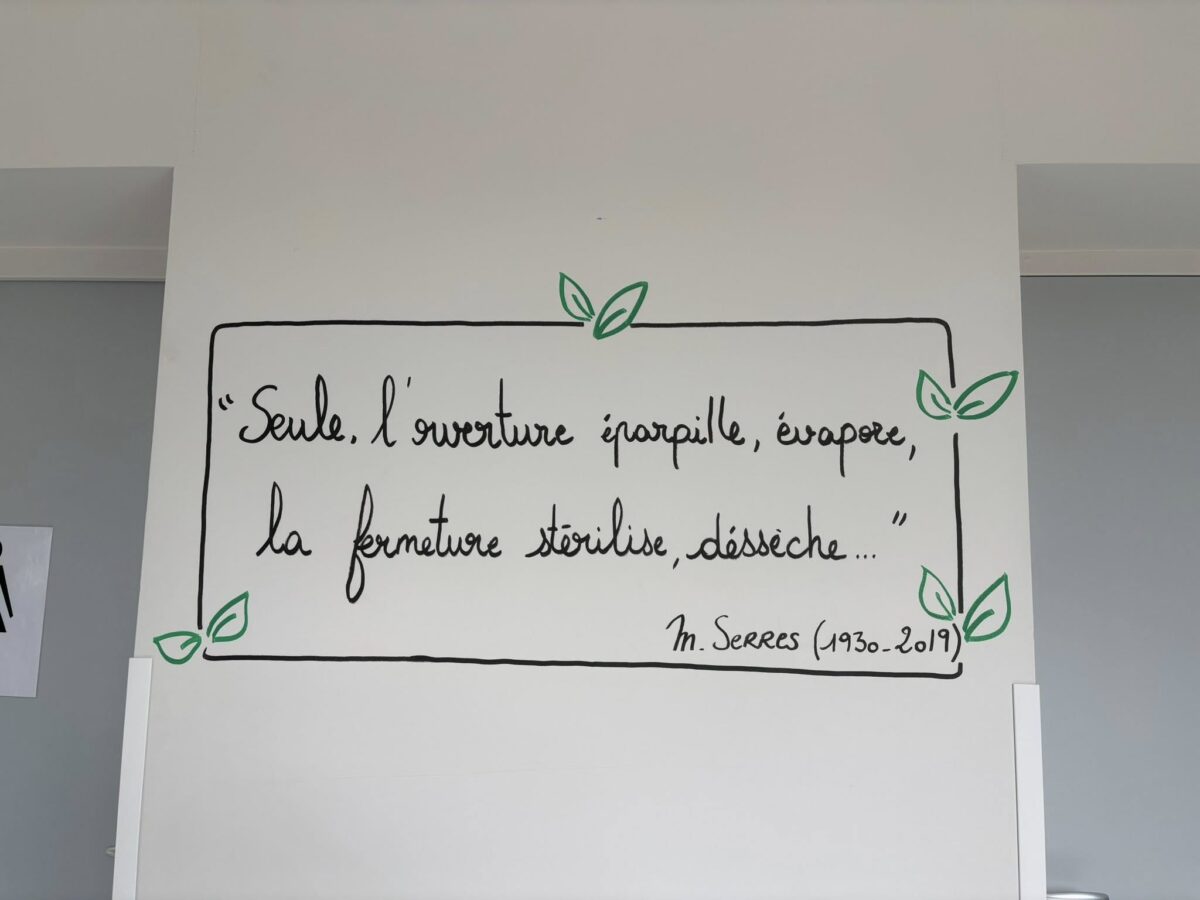 “Seule, l'ouverture éparpille, évapore,
la fermeture stérilise, déssèche..."
M. SERRES (1930-2019)